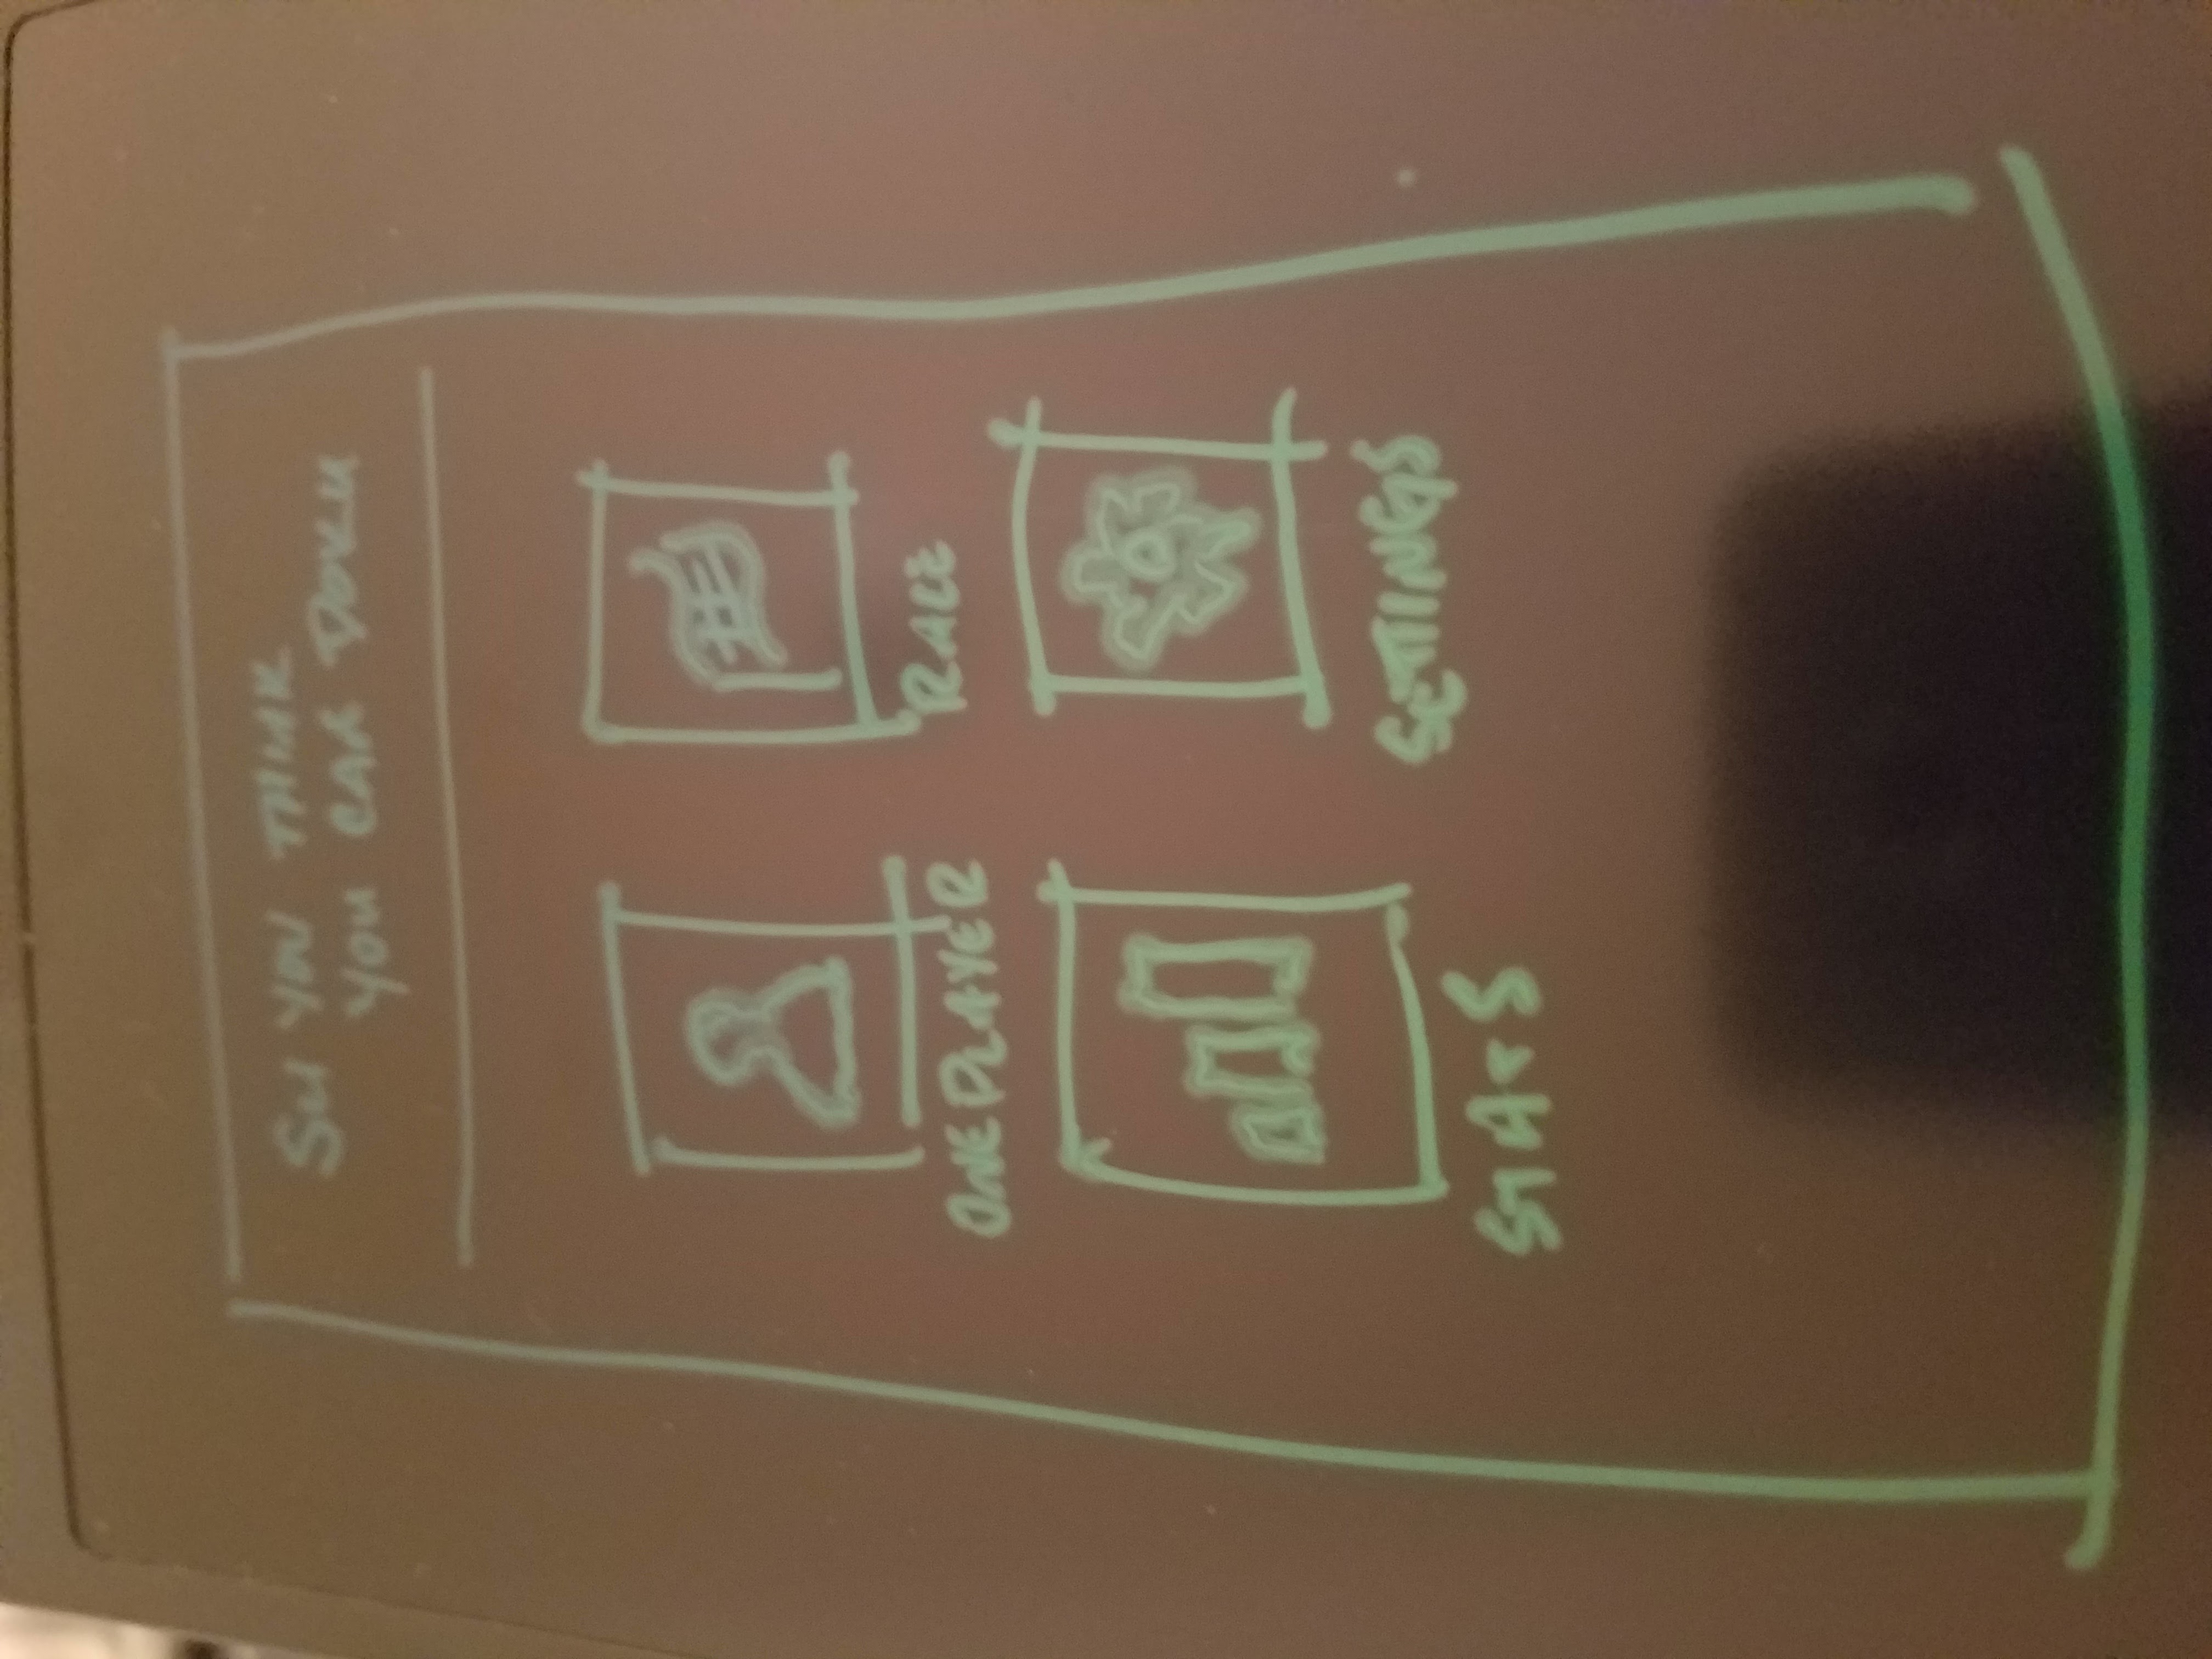 SU YOU THINK
YOU CAN DOKU
ONE PLAYER
RACE
STATS
SETTINGS